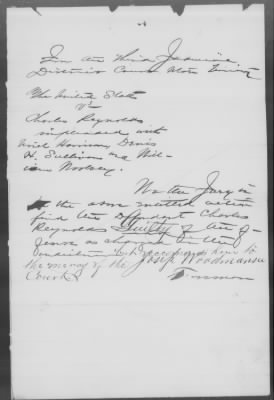 In the Third Judicial
District Court Utah Territory
The United States
vs
Charles Reynolds
impleaded with
Uriel Harrison, Denis
H. Sullivan and Wil-
iam Woolsey.
We the Jury in
the above entitled action
find the Defendant Charles
Reynolds Guilty of the of-
fense as charged in the
Indictment but recommend him to
the mercy of the
Court
Joseph Woodmansee
Foreman